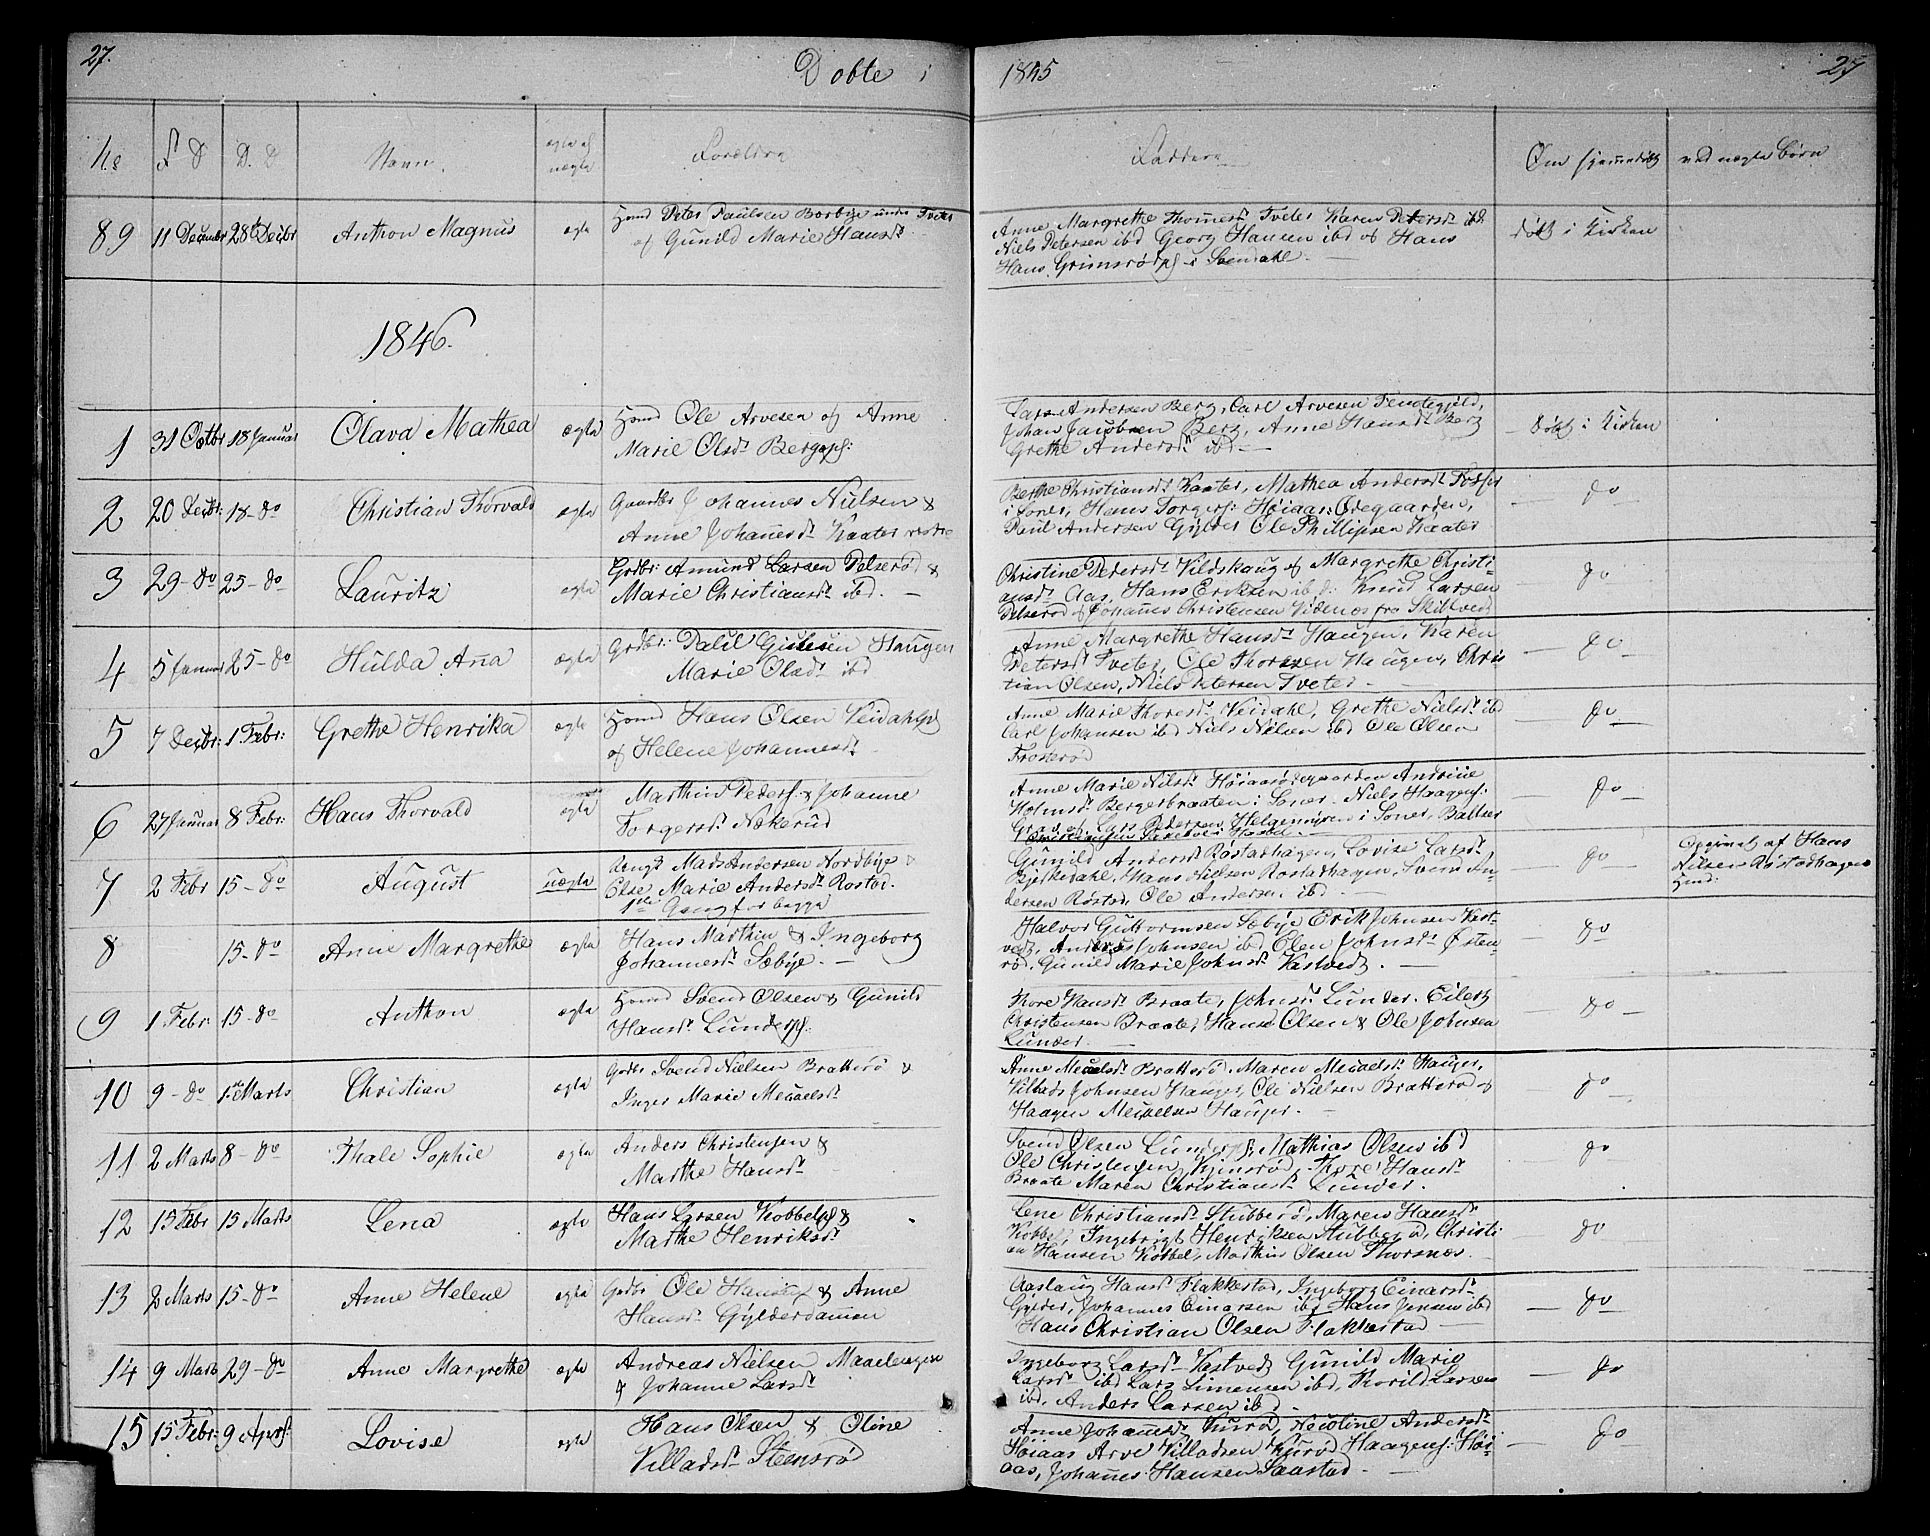 27. Døbte i 1845 27
No F. D D. D Navn ægte el uægte Forældre Faddere Om hjemmedøbt ved uægte Børn
89 11 Decembr 28 Decbr Anthon Magnus ægte Huusmd Peter Paulsen Borbye under Tveter
og Gunild Marie Hansdr
Anne Margrethe Thomesdr Tveter Karen Petersdr ibd
Niels Petersen ibd Georg Hansen ibd og Hans
Hans. Grimsrø
døbt i Kirken
1846.
1 31 Octbr 18 Januar Olava Mathea ægte Huusmd Ole Arvesen og Anne
Marie Olsdr Berg
Lars Andersen Berg, Carl Arvesen
Johan Jacobsen Berg, Anne Hansdr Berg
Grethe Andersdr ibd —
— døbt i Kirken
2 20 Decbr: 18 - do Christian Thorvald ægte Gaardbr Johannes Nielsen &
Anne Johannesdr Kaater vestre
Berthe Christiansdr Kaater, Mathea Andersdr
i Soner, Hans Torgers: Høiaas Ødegaarden,
Paul Andersen Gylder Ole Phillipsen Kaater
— do
3 29 - do 25 - do Lauritz ægte Grdbr: Amund Larsen Delserød &
Marie Christiansdr ibd. —
Christine Pedersdr Vildskaug og Margrethe Christi-
ansdr Aas, Hans Eriksen ibd: Knud Larsen
Delserød og Johannes Christensen fra Skibtvedt
— do
4 5 Januar 25 - do Hulda Ana ægte Grdbr: Paul Gulesen Haugen
Marie Olsdr ibd
Anne Margrethe Hansdr Haugen, Karen
Petersdr Tveter, Ole Thoresen Haugen, Chris
tian Olsen, Niels Petersen Tveter —
— do
5 7 Decbr: 1 Febr: Grethe Henrika ægte Huusmd Hans Olsen Veidahl
og Helene Johannesdr
Anne Marie Thoresdr Veidahl, Grethe Nielsdr ibd
Carl Johansen ibd Niels Nielsen ibd Ole Olsen
Frosterød
— do
6 27 Januar 8 Febr: Hans Thorvald ægte Marthin Peders: & Johanne
Torgersdr Nøkerud
Anne Marie Nilsdr Høiaasødegaarden Andrine
Holmsdr Bergerbraaten i Soner. Niels Haagens:
Lars Pedersen Helgerniren i Soner, Baltser
— do
7 2 Febr 15 - do August uægte Mads Andersen Nordbye &
Else Marie Andersdr Rostad.
1ste Gang for begge
Gunild Andersdr Rostadhagen, Lovise Larsdr
Bjerkedahl, Hans Nielsen Rostadhagen, Svend An-
dersen Rostad, Ole Andersen ibd
— do
Opgivet af Hans
Nilsen Rostadhagen
8 15 - do Anne Margrethe ægte Hans Marthin & Ingeborg
Johannesdr Sæbye. —
Halvor Guttormsen Sæbye Erik Johnsen Kast-
vedt, Anders Johnsen ibd Elen Johnsdr Østen-
rød, Gunild Marie Johnsdr Kastvedt. —
do
9 1 Febr: 15 - do Anthon ægte Huusmd Svend Olsen & Gunild
Hansdr Lunder
Thore Hansdr Braate, Lunder. Eilert
Christensen Braate, Hans Olsen & Ole Johnsen
Lunder.
— do
10 9 - do 1ste Marts Christian ægte Gdbr Svend Nielsen Bratterø &
Inger Marie Micaelsdr
Anne Micaelsdr Bratterø, Maren Micaelsdr Hauger,
Villads Johnsen Hauger, Ole Nielsen Bratterø og
Haagen Micaelsen Hauger. —
do
11 2 Marts 8 - do Thale Sophie ægte Anders Christensen &
Marthe Hansdr
Svend Olsen Lunder Mathias Olsen ibd
Ole Christensen Kjinsrød, Thore Hansdr
Braate Maren Christiansdr Lunder.
do
12 15 Febr 15 Marts Lena ægte Hans Larsen Kobbel &
Marthe Henriksdr
Lene Christiansdr Stubberød, Maren Hansdr
Kobbel, Ingebrigt Henriksen Stubberød, Christi
an Hansen Kobbel, Marthin Olsen Thorsnes.
do
13 2 Marts 15 - do Anne Helene ægte Gdbr Ole Hansen & Anne
Hansdr Gylderdammen
Aaslaug Hansdr Flakkestad, Ingeborg Einarsdr
Gylder, Johannes Einarsen ibd Hans Jensen ibd
Hans Christian Olsen Flakkestad —
— do
14 9 Marts 29 - do Anne Margrethe ægte Andreas Nielsen Maaelengen
& Johanne Larsdr
Ingeborg Larsdr Kastvedt Gunild Marie
Larsdr ibd Lars Simensen ibd, Thorild Larsen
ibd, Anders Larsen ibd.
— do
15 15 Febr: 9 April Lovise ægte Hans Olsen & Oline
Villadsdr Steensrød
Anne Johannesdr Kurød, Nicoline Andersdr
Høiaas Arve Villadsen Kurød Haagens: Høi-
aas, Johannes Hansen Saastad. —
— do